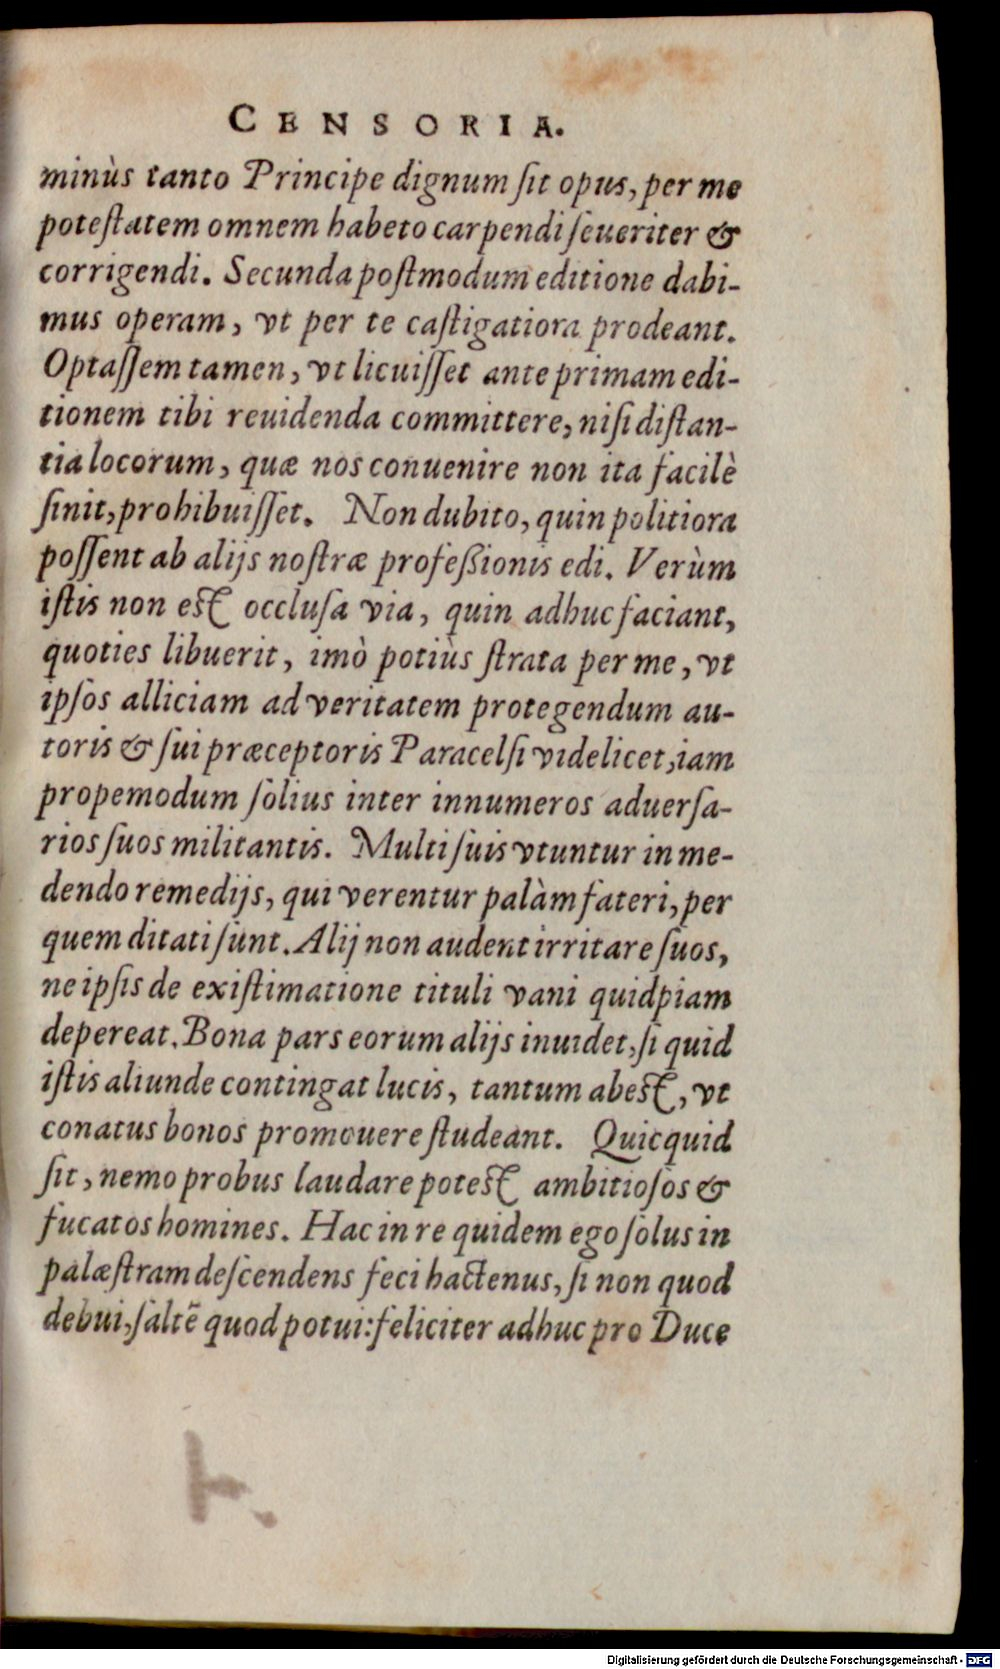 CENSORIA.
minùs tanto Principe dignum ſit opus, per me
poteſtatem omnem habeto carpendi ſeueriter &
corrigendi. Secunda poſtmodum editione dabi-
mus operam, vt per te caſtigatiora prodeant.
Optaſſem tamen, vt licuiſſet ante primam edi-
tionem tibi reuidenda committere, niſi diſtan-
tia locorum, quæ nos conuenire non ita facilè
ſinit, prohibuiſſet. Non dubito, quin politiora
poſſent ab alijs noſtræ profeßionis edi. Verùm
iſtis non eſt occluſa via, quin adhuc faciant,
quoties libuerit, imò potiùs ſtrata per me, vt
ipſos alliciam ad veritatem protegendum au-
toris & ſui præceptoris Paracelſi videlicet, iam
propemodum ſolius inter innumeros aduerſa-
rios ſuos militantis. Multi ſuis vtuntur in me-
dendo remedijs, qui verentur palàm fateri, per
quem ditati ſunt. Alij non audent irritare ſuos,
ne ipſis de exiſtimatione tituli vani quidpiam
depereat. Bona pars eorum alijs inuidet, ſi quid
iſtis aliunde contingat lucis, tantum abeſt, vt
conatus bonos promouere ſtudeant. Quicquid
ſit, nemo probus laudare poteſt ambitioſos &
fucatos homines. Hac in re quidem ego ſolus in
palæſtram deſcendens feci hactenus, ſi non quod
debui, ſaltẽ quod potui: feliciter adhuc pro Duce
Digitalisierung gefördert durch die Deutsche Forschungsgemeinschaft - DFG